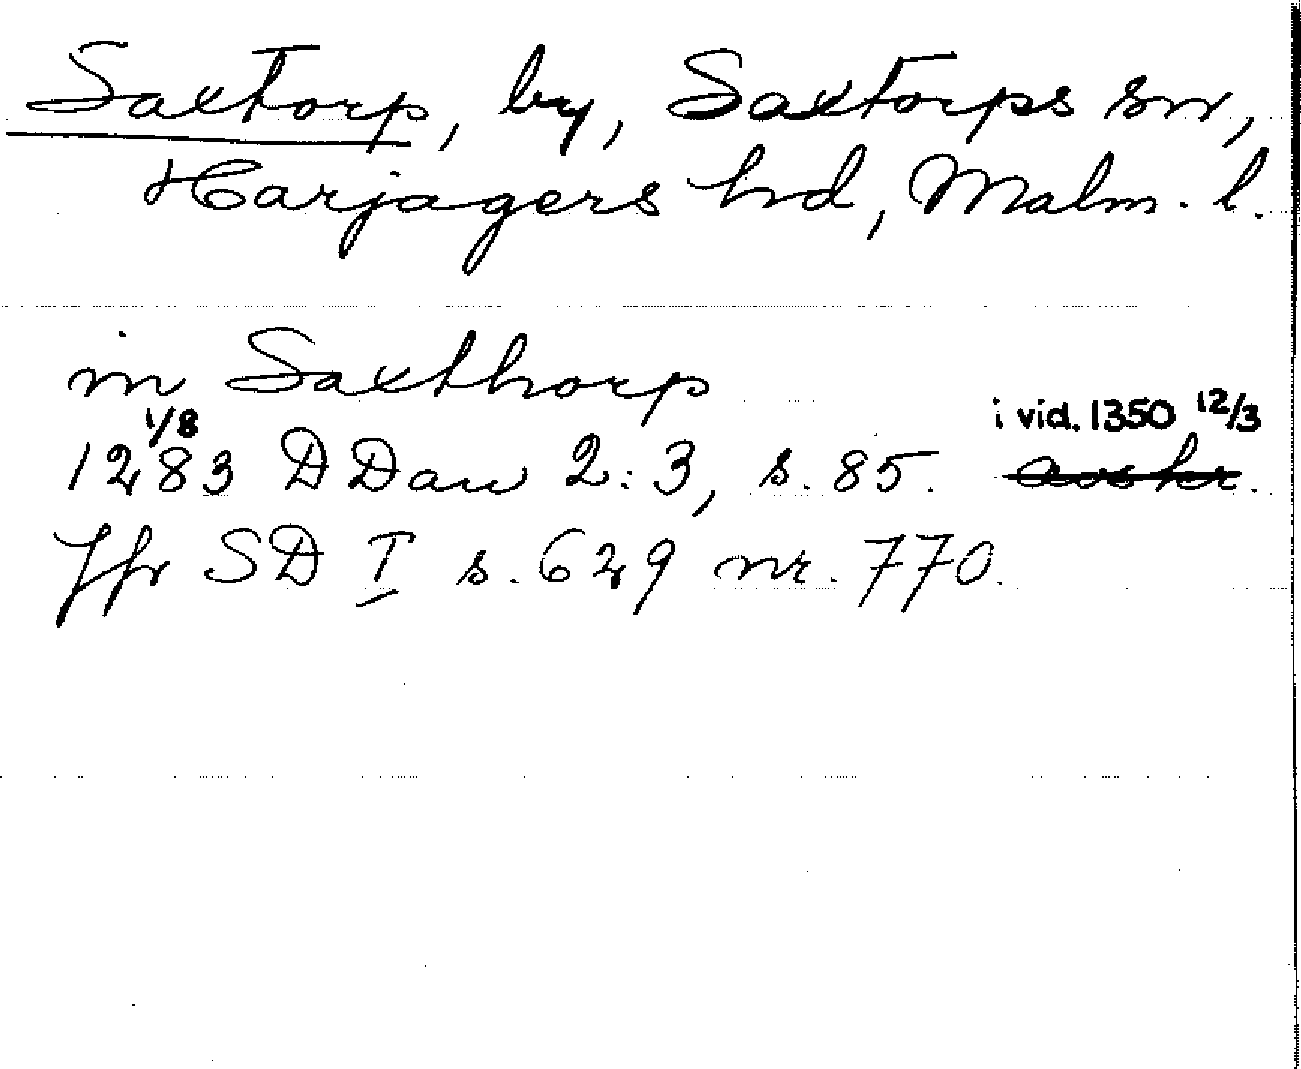 Saxtorp, by, Saxtorps sn,
Harjagers hd, Malm. l.
in Saxthorp
1/8 i vid. 1350 12/3
1283 DDan 2:3, s. 85. avskr.
Jfr SD I s. 629 nr. 770.